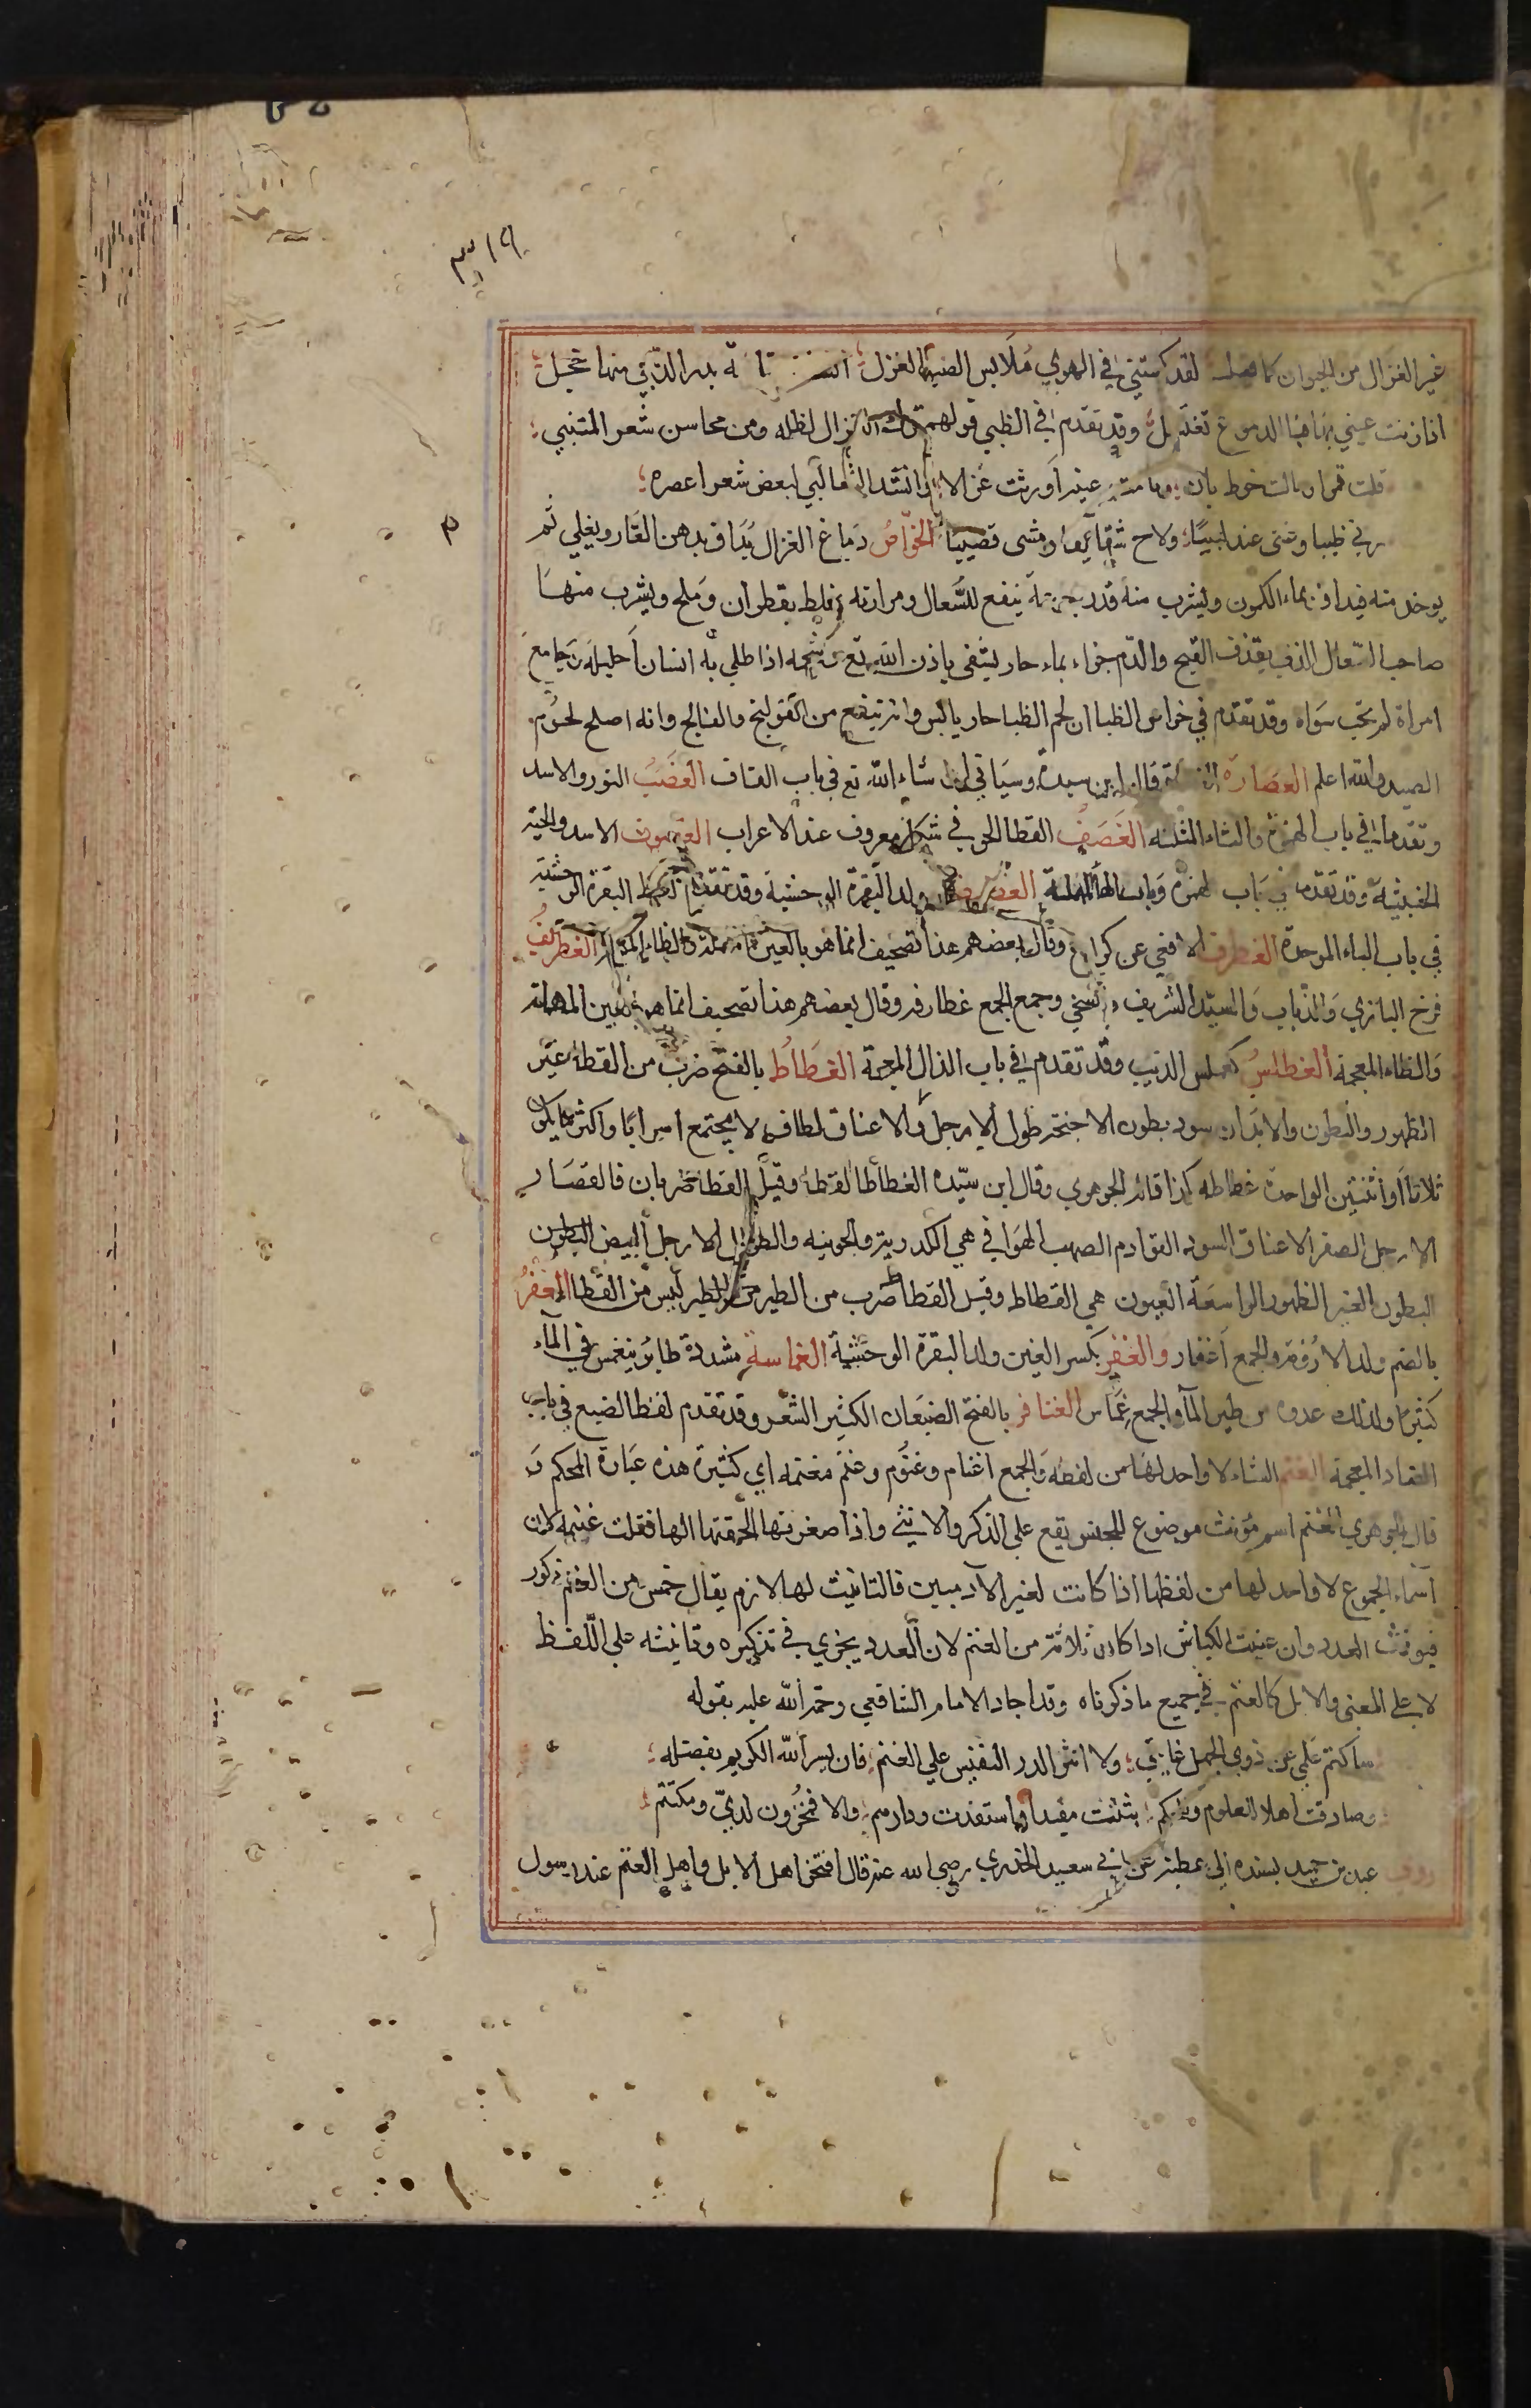 ٣١٩
غير الغزال من الحيوان كما لقد كستني في الهوي ملابس الصب الغزل انسانة بدر الدجي منها خجل
اذا زنت عيني بها فبالدموع تغتسل وقد تقدم في الظبي قولهم ترك الغزال لظله ومن محاسن شعر المتنبي
قمرا ومالت خوط بان وفاحت عنبرا ورنت غزالا وانشد الثعالبي لبعض شعرا عصره
رني ظبيا وغني عندليبا ولاح شقايقا ومشي قضيبا الخواص دماغ الغزال يداف بدهن الغار ويغلي ثم
يوخد منه فيداف بماء الكمون ويشرب منه قدر جرعة ينفع للسعال ومرارته تخلط بقطران وملح ويشرب منها
صاحب السعال الذي يقذف القيح والدم جزاء بماء حار يشفي باذن الله تع وشحمه اذا طلي به انسان احليله وجامع
امراة لم تحب سواه وقد تقدم في خواص الظبا ان لحم الظبا حار يابس وانه ينفع من القولنج والفالج وانه اصلح لحوم
الصيد والله اعلم الغضارة القطاة قاله ابن سيدة وسياتي ان شاء الله تع في باب القاف الغضب الثور والاسد
وتقدما في باب الهمزة والثاء المثلثه الغضف القطا الجوني شكل معروف عند الاعراب الغضوف الاسد والحية
الخبيثة وقد تقدما في باب الهمزة وباب الحا المهملة الغضيض ولد البقرة الوحشية وقد تقدم لفظ البقرة الوحشية
في باب الباء الموحدة الغطرف الافعي عن كراع وقال بعضهم هذا تصحيف انما هو بالعين المهملة والظاء المعجمة الغطريف
فرخ البازي والذباب والسيد الشريف والسخي وجمع الجمع غطارفه وقال بعضهم هذا تصحيف انما هو بالعين المهملة
والظاء المعجمة الغطلس كعملس الذيب وقد تقدم في باب الذال المعجمة الغطاط بالفتح ضرب من القطا غبر
الظهور والبطون والابدان سود بطون الاجنحة طول الارجل والاعناق لطاف لا يجتمع اسرابا واكثر ما يكون
ثلاثا او اثنتين الواحدة غطاطه كذا قاله الجوهري وقال ابن سيده الغطاط القطا وقيل القطا ضربان فالقصار
الارجل الصفر الاعناق السود القوادم الصهب الخوافي هي الكدرية والجونيه والطوال الارجل البيض البطون
البطون الغبر الظهور الواسعة العيون هي الغطاط وقيل الغطاط ضرب من الطير من الطير ليس من القطا الغفر
بالضم ولد الاروية والجمع اغفار والغفر بكسر الغين ولد البقرة الوحشية الغماسة مشددة طاير ينغمس في الماء
كثيرا ولذلك عدوه من طير الما والجمع غماس الغنافر بالفتح الضبعان الكثير الشعر وقد تقدم لفظ الضبع في باب
الضاد المعجمة الغنم الشاء لا واحد لها من لفظه والجمع اغنام وغنوم وغنم مغنمه اي كثيرة هذه عبارة المحكم و
قال الجوهري الغنم اسم مونث موضوع للجنس يقع علي الذكر والانثي واذا صغرتها الحقتها الها فقلت غنيمه لان
اسماء الجموع لا واحد لها من لفظها اذا كانت لغير الآدميين فالتانيث لها لازم يقال خمس من الغنم ذكور
فيونث العدد وان عنيت الكباش اذا كان ثلاثة من الغنم لان العدد يجري في تذكيره وتانيثه علي اللفظ
لا علي المعني والابل كالغنم في جميع ما ذكرناه وقد اجاد الامام الشافعي رحمة الله عليه بقوله
ساكتم علمي عن ذوي الجهل طاقتي ولا انثر الدر النفيس علي الغنم فان يسر الله الكريم بفضله
وصادقت اهلا للعلوم وللحكم بثثت مفيدا واستفدت ودادهم والا فمخزون لدي ومكتتم
روي عبد بن حميد بسنده الي عطية عن ابي سعيد الخدري رضي الله عنه قال افتخر اهل الابل واهل الغنم عند رسول